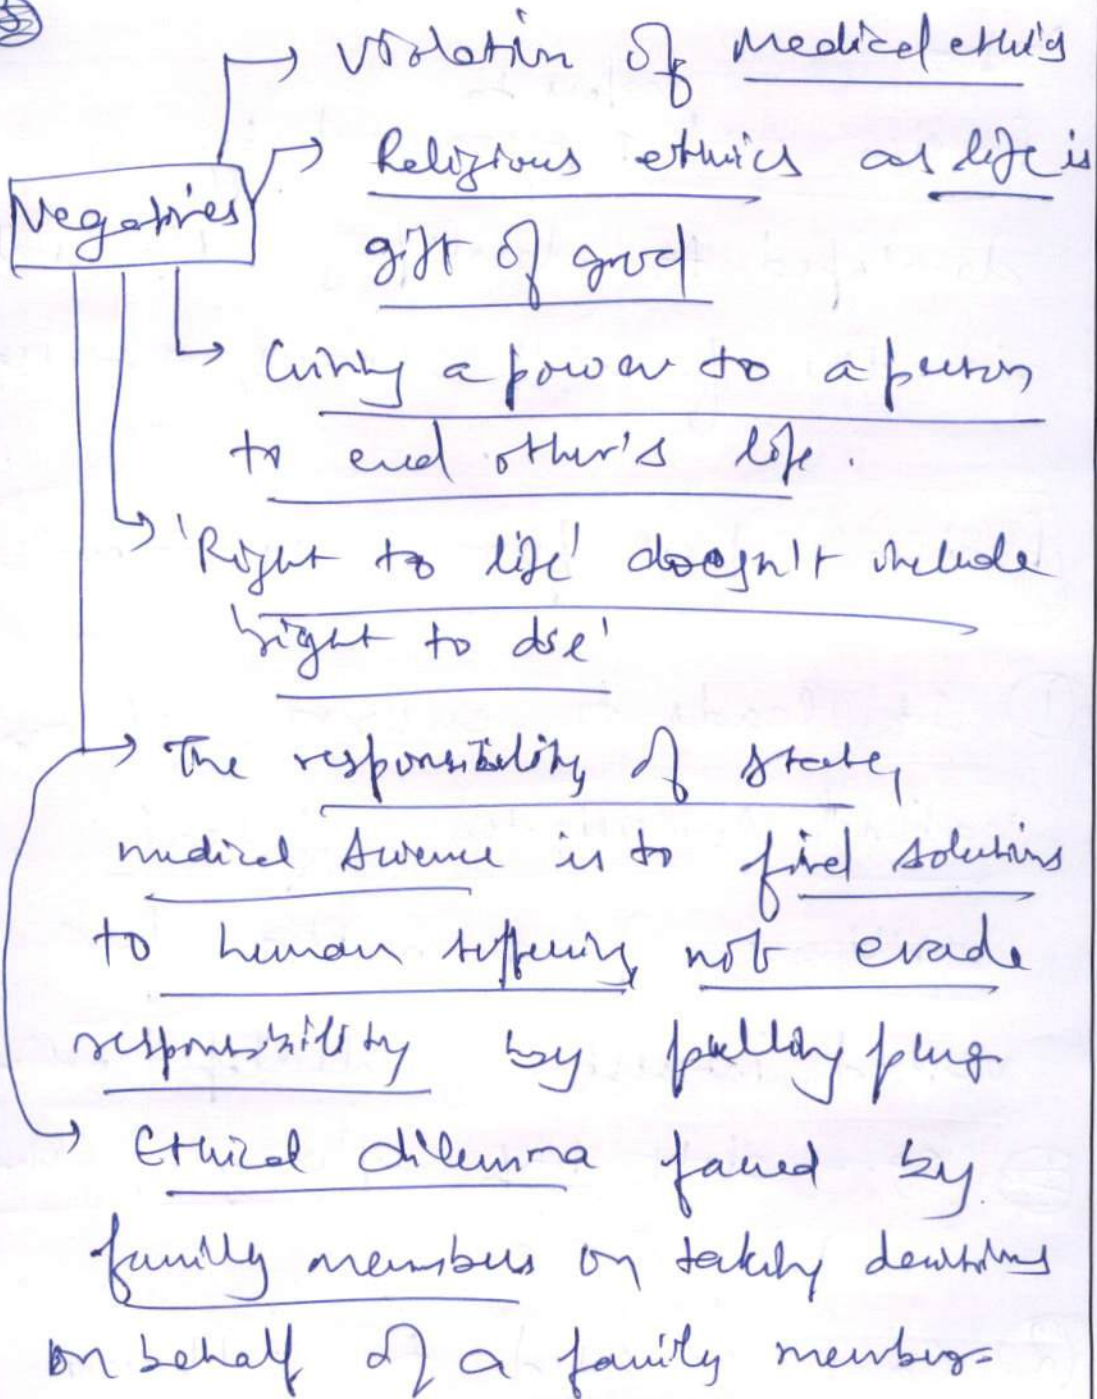 Violation of Medical ethics
Religious ethics as life is
Negatives
gift of god
Giving a power to a person
to end other's life.
'Right to life' doesn't include
'right to die'
The responsibility of state,
medical science is to find solutions
to human suffering, not evade
responsibility by pulling plug.
Ethical dilemma faced by
family members on taking decisions
on behalf of a family member.